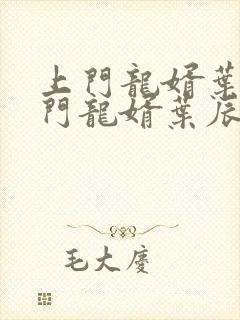 上門龍婿葉
門龍婿葉辰
毛大慶